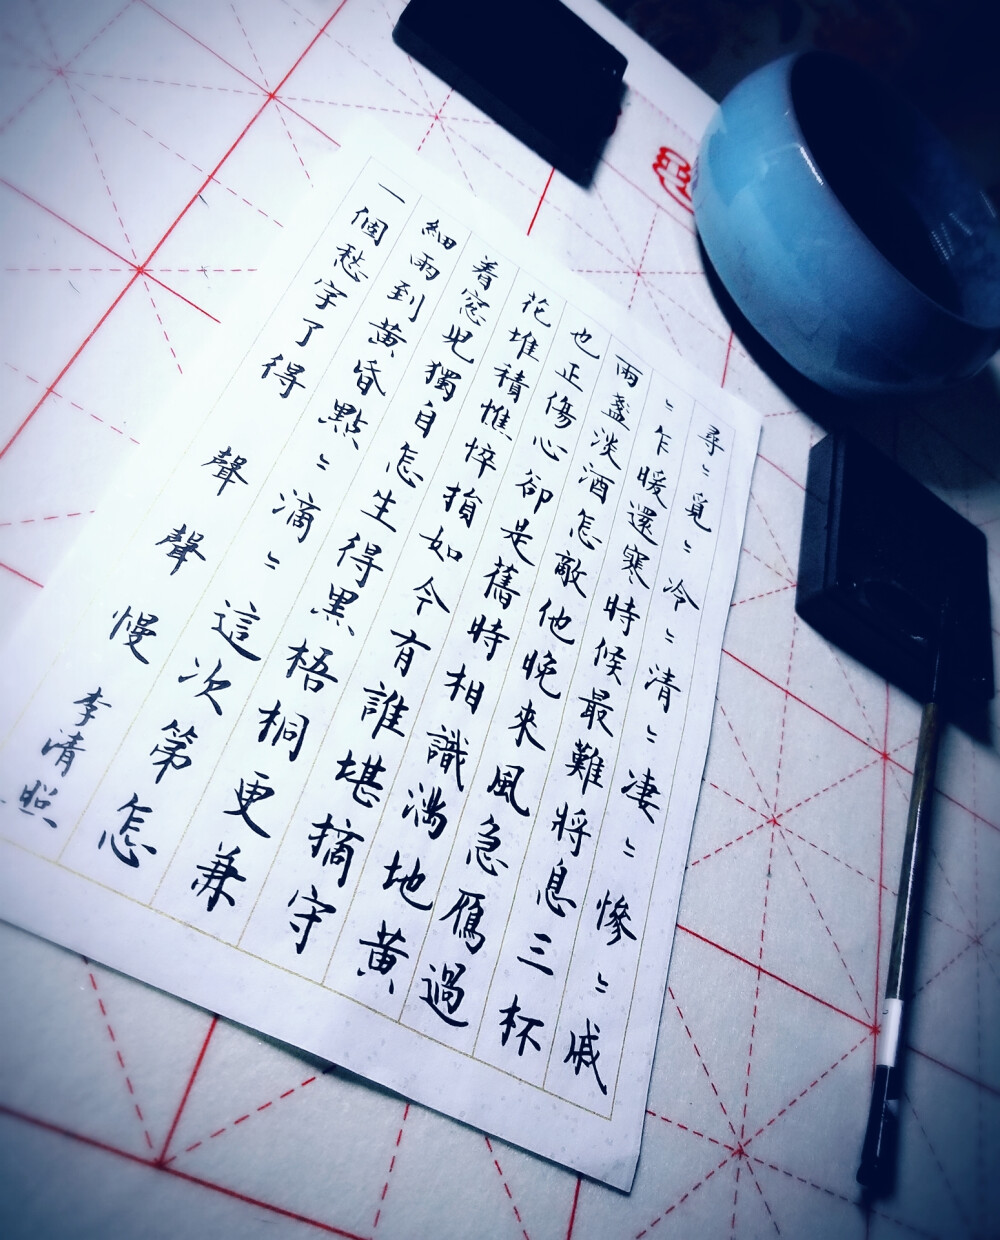 尋〻覓〻冷〻清〻凄〻慘〻戚
〻乍暖還寒時候最難將息三杯
兩盞淡酒怎敵他晚來風急鴈過
也正傷心卻是舊時相識滿地黃
花堆積憔悴損如今有誰堪摘守
着窓兒獨自怎生得黑梧桐更兼
細雨到黃昏點〻滴〻這次第怎
一個愁字了得 聲聲慢 李清照